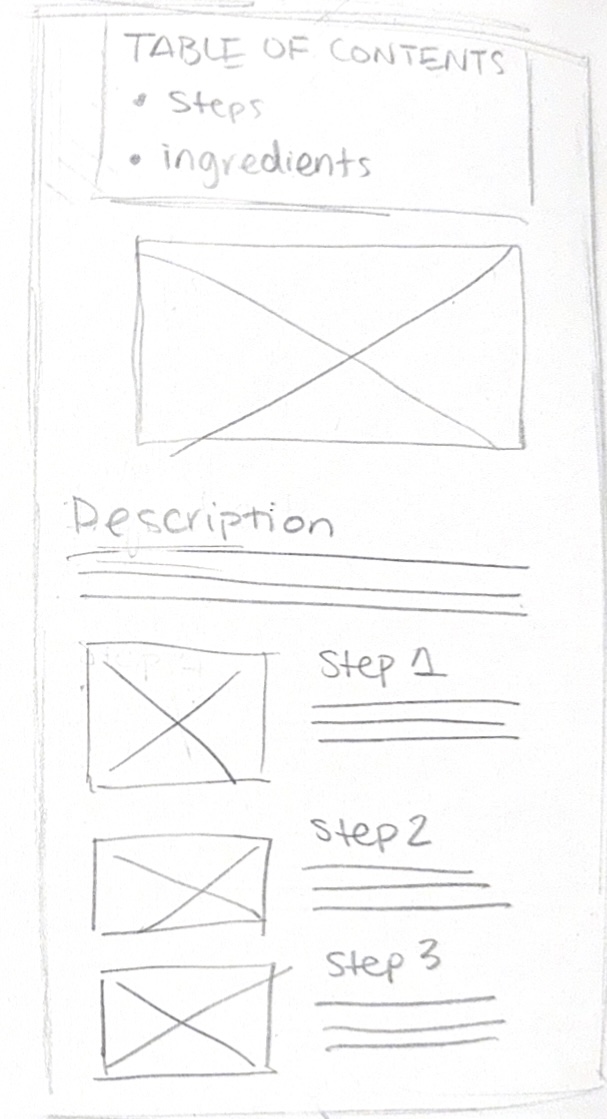 TABLE OF CONTENTS
• Steps
• ingredients
Description
Step 1
Step 2
Step 3